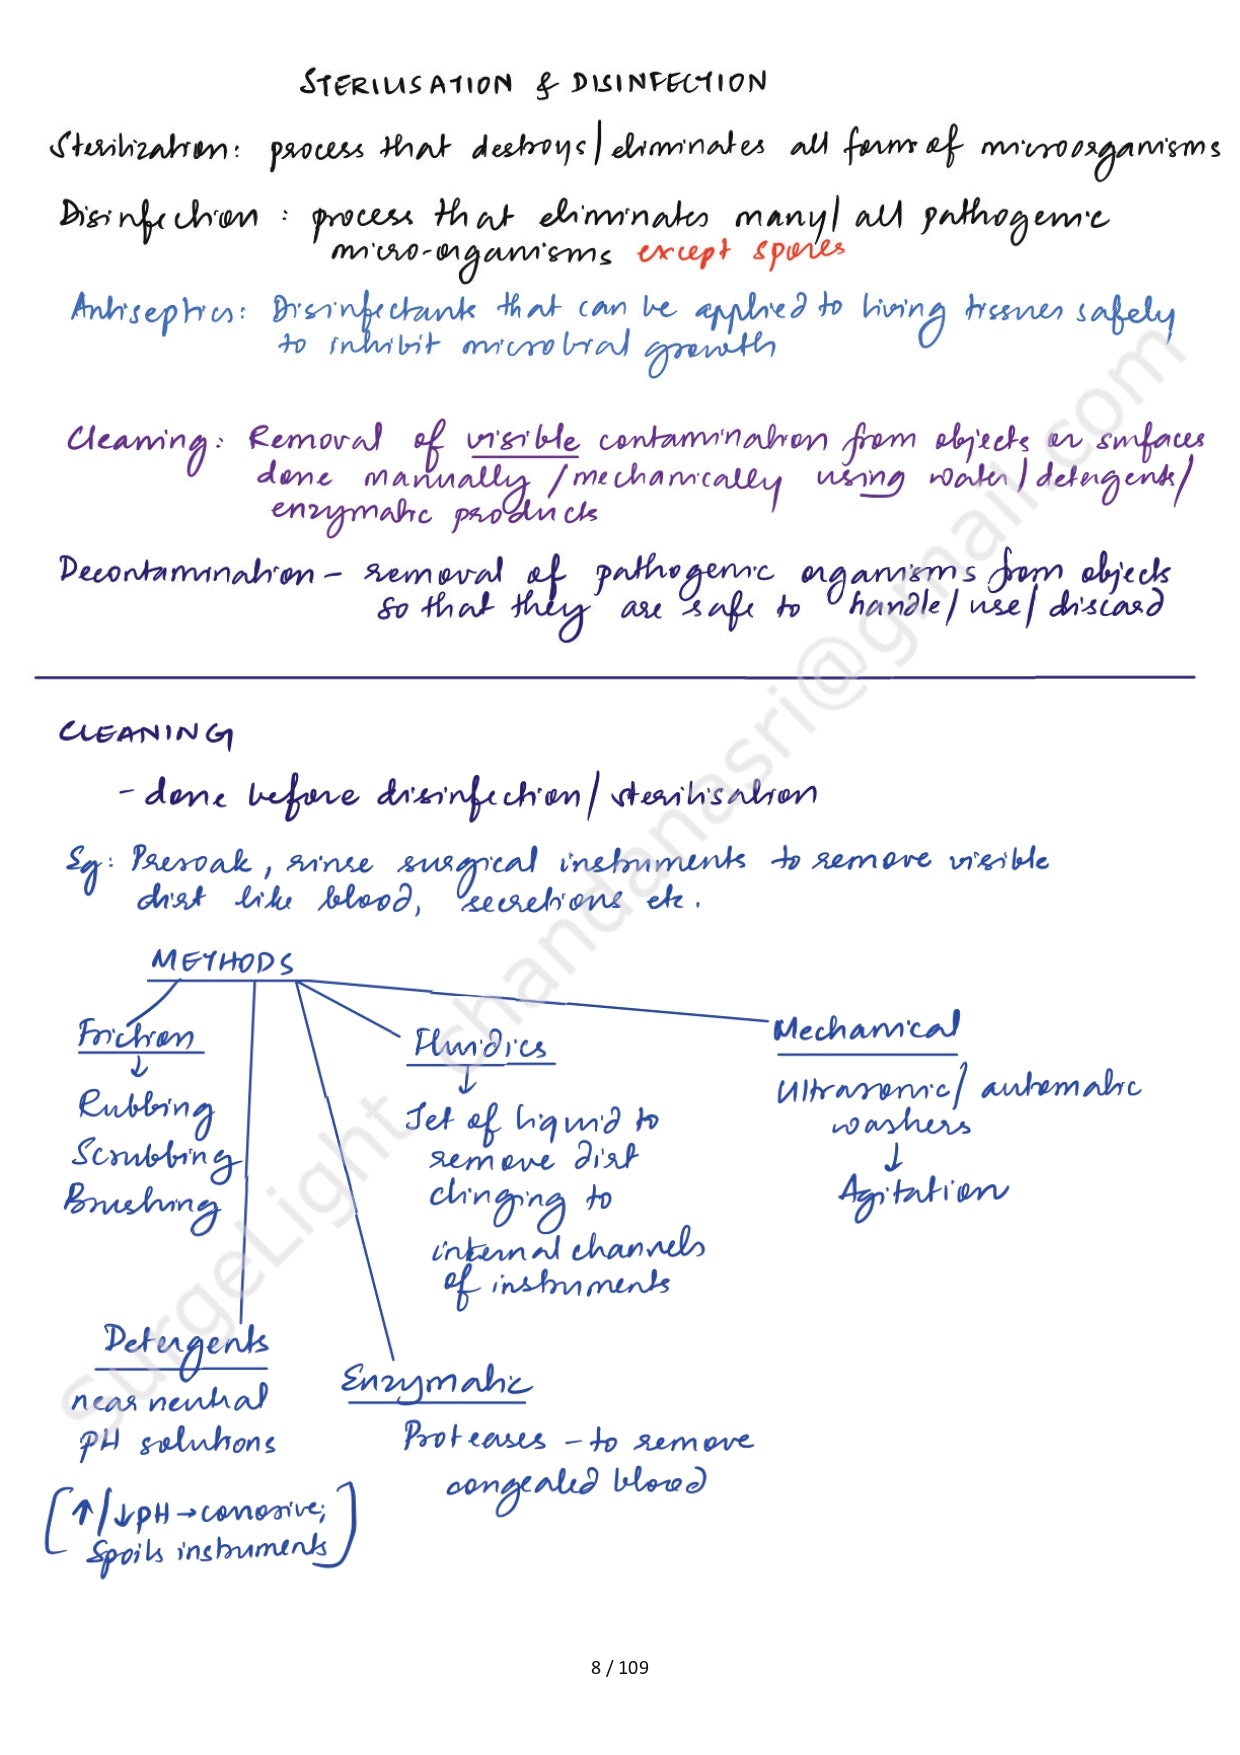 STERILISATION & DISINFECTION
Sterilization: process that destroys/eliminates all form of microorganisms
Disinfection : process that eliminates many/ all pathogenic
micro-organisms except spores
Antiseptics: Disinfectants that can be applied to living tissues safely
to inhibit microbial growth
Cleaning: Removal of visible contamination from objects or surfaces
done manually /mechanically using water/detergents/
enzymatic products
Decontamination - removal of pathogenic organisms from objects
so that they are safe to handle/use/discard
CLEANING
- done before disinfection/sterilisation
Eg: Presoak, rinse surgical instruments to remove visible
dirt like blood, secretions etc.
METHODS
Friction
↓
Rubbing
Scrubbing
Brushing
Fluidics
↓
Jet of liquid to
remove dirt
clinging to
internal channels
of instruments
Mechanical
Ultrasonic/ automatic
washers
↓
Agitation
Detergents
near neutral
pH solutions
[↑/↓pH → corrosive;
Spoils instruments]
Enzymatic
Proteases - to remove
congealed blood
SurgeLight chandanasri@gmail.com
8 / 109